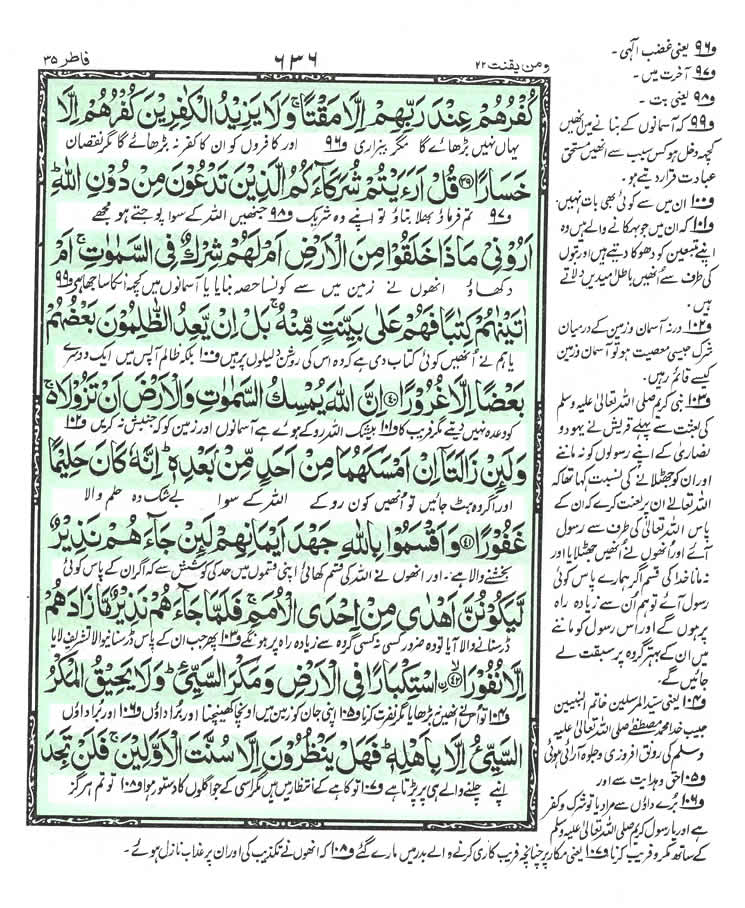 ومن یقنت ۲۲
۶۳۶
فاطر ۳۵
كُفْرُهُمْ عِنْدَ رَبِّهِمْ اِلَّا مَقْتًا ۚ وَلَا يَزِيْدُ الْكٰفِرِيْنَ كُفْرُهُمْ اِلَّا
یہاں نہیں بڑھائے گا مگر بیزاری ف۹۶ اور کافروں کو ان کا کفر نہ بڑھائے گا مگر نقصان
خَسَارًا ﴿۳۹﴾ قُلْ اَرَءَيْتُمْ شُرَكَآءَكُمُ الَّذِيْنَ تَدْعُوْنَ مِنْ دُوْنِ اللّٰهِ ؕ
ف۹۷ تم فرماؤ بھلا بتاؤ تو اپنے وہ شریک ف۹۸ جنھیں اللہ کے سوا پوجتے ہو مجھے
اَرُوْنِيْ مَاذَا خَلَقُوْا مِنَ الْاَرْضِ اَمْ لَهُمْ شِرْكٌ فِي السَّمٰوٰتِ ۚ اَمْ
دکھاؤ انھوں نے زمین میں سے کونسا حصہ بنایا یا آسمانوں میں کچھ انکا ساجھا ہے ف۹۹
اٰتَيْنٰهُمْ كِتٰبًا فَهُمْ عَلٰى بَيِّنَتٍ مِّنْهُ ۚ بَلْ اِنْ يَّعِدُ الظّٰلِمُوْنَ بَعْضُهُمْ
یا ہم نے انھیں کوئی کتاب دی ہے کہ وہ اس کی روشن دلیلوں پر ہیں ف۱۰۰ بلکہ ظالم آپس میں ایک دوسرے
بَعْضًا اِلَّا غُرُوْرًا ﴿۴۰﴾ اِنَّ اللّٰهَ يُمْسِكُ السَّمٰوٰتِ وَالْاَرْضَ اَنْ تَزُوْلَا ۚ۬
کو وعدہ نہیں دیتے مگر فریب کا ف۱۰۱ بیشک اللہ روکے ہوئے ہے آسمانوں اور زمین کو کہ جنبش نہ کریں ف۱۰۲
وَلَئِنْ زَالَتَاۤ اِنْ اَمْسَكَهُمَا مِنْ اَحَدٍ مِّنْۢ بَعْدِهٖ ؕ اِنَّهٗ كَانَ حَلِيْمًا
اور اگر وہ ہٹ جائیں تو انھیں کون روکے اللہ کے سوا بے شک وہ حلم والا
غَفُوْرًا ﴿۴۱﴾ وَاَقْسَمُوْا بِاللّٰهِ جَهْدَ اَيْمَانِهِمْ لَئِنْ جَآءَهُمْ نَذِيْرٌ
بخشنے والا ہے۔ اور انھوں نے اللہ کی قسم کھائی اپنی قسموں میں حد کی کوشش سے کہ اگر ان کے پاس کوئی
لَّيَكُوْنُنَّ اَهْدٰى مِنْ اِحْدَى الْاُمَمِ ۚ فَلَمَّا جَآءَهُمْ نَذِيْرٌ مَّا زَادَهُمْ
ڈر سنانے والا آیا تو وہ ضرور کسی نہ کسی گروہ سے زیادہ راہ پر ہونگے ف۱۰۳ پھر جب ان کے پاس ڈر سنانیوالا تشریف لایا
اِلَّا نُفُوْرًا ﴿۴۲﴾ اسْتِكْبَارًا فِي الْاَرْضِ وَمَكْرَ السَّيِّئِ ؕ وَلَا يَحِيْقُ الْمَكْرُ
ف۱۰۴ تو اس نے انھیں نہ بڑھایا مگر نفرت کرنا ف۱۰۵ اپنی جان کو زمین میں اونچا کھینچنا اور برا داؤں ف۱۰۶ اور برا داؤں
السَّيِّئُ اِلَّا بِاَهْلِهٖ ؕ فَهَلْ يَنْظُرُوْنَ اِلَّا سُنَّتَ الْاَوَّلِيْنَ ۚ فَلَنْ تَجِدَ
اپنے چلنے والے ہی پر پڑتا ہے ف۱۰۷ تو کاہے کے انتظار میں ہیں مگر اسی کے جو اگلوں کا دستور ہوا ف۱۰۸ تو تم ہرگز
ف۹۶ یعنی غضب الٰہی۔
ف۹۷ آخرت میں۔
ف۹۸ یعنی بت۔
ف۹۹ کہ آسمانوں کے بنانے میں انھیں
کچھ دخل ہو کس سبب سے انھیں مستحق
عبادت قرار دیتے ہو۔
ف۱۰۰ ان میں سے کوئی بھی بات نہیں۔
ف۱۰۱ کہ ان میں جو بہکانے والے ہیں وہ
اپنے متبعین کو دھوکا دیتے ہیں اور بتوں
کی طرف سے انھیں باطل امیدیں دلاتے
ہیں۔
ف۱۰۲ ورنہ آسمان و زمین کے درمیان
شرک جیسی معصیت ہو تو آسمان و زمین
کیسے قائم رہیں۔
ف۱۰۳ نبی کریم صلی اللہ تعالیٰ علیہ وسلم
کی بعثت سے پہلے قریش نے یہود و
نصاریٰ کے اپنے رسولوں کو نہ ماننے
اور ان کو جھٹلانے کی نسبت کہا تھا کہ
اللہ تعالیٰ ان پر لعنت کرے کہ ان کے
پاس اللہ تعالیٰ کی طرف سے رسول
آئے اور انھوں نے انھیں جھٹلایا اور
نہ مانا خدا کی قسم اگر ہمارے پاس کوئی
رسول آئے تو ہم ان سے زیادہ راہ
پر ہوں گے اور اس رسول کو ماننے
میں ان کے بہتر گروہ پر سبقت لے
جائیں گے۔
ف۱۰۴ یعنی سید المرسلین خاتم النبیین
حبیب خدا محمد مصطفےٰ صلی اللہ تعالیٰ علیہ و
وسلم کی رونق افروزی و جلوہ آرائی ہوئی
ف۱۰۵ حق و ہدایت سے اور
ف۱۰۶ برے داؤں سے مراد یا تو شرک و کفر
ہے اور یا رسول کریم صلی اللہ تعالیٰ علیہ وسلم
کے ساتھ مکر و فریب کرنا ف۱۰۷ یعنی مکار پر چنانچہ فریب کاری کرنے والے بدر میں مارے گئے ف۱۰۸ کہ انھوں نے تکذیب کی اور ان پر عذاب نازل ہوئے۔